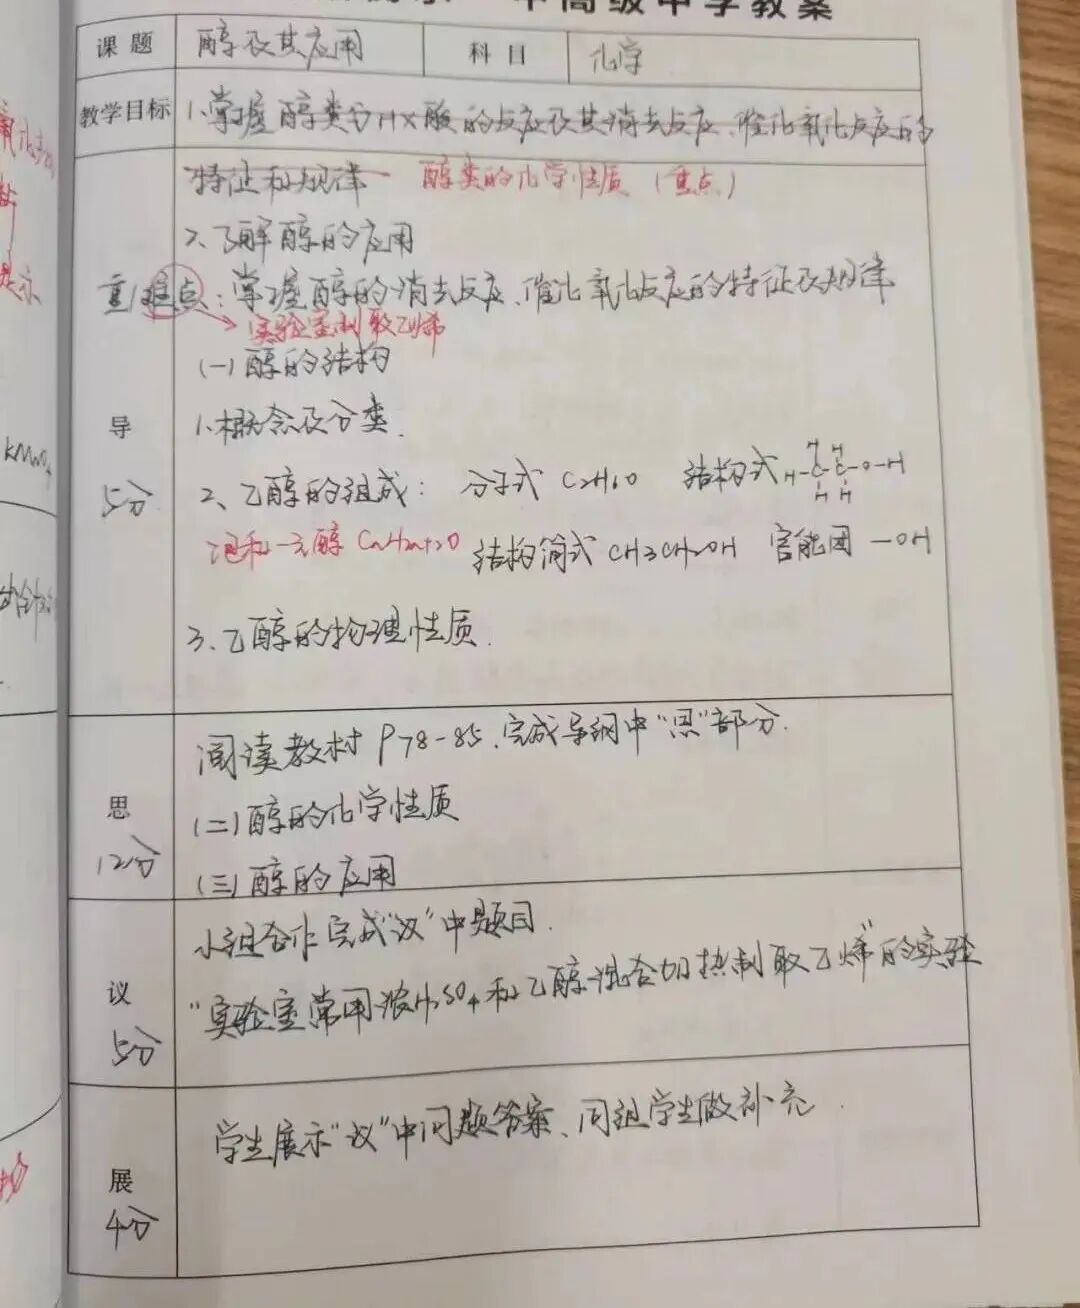 高级中学教案
课题 醇及其应用 科目 化学
教学目标 1.掌握醇类与HX酸的反应及其消去反应、催化氧化反应的
特征和规律 醇类的化学性质(重点)
2、了解醇的应用
重/难点:掌握醇的消去反应、催化氧化反应的特征及规律
实验室制取乙烯
(一)醇的结构
导
5分
1.概念及分类.
2、乙醇的组成: 分子式 C2H6O 结构式 H-C-C-O-H
H H
H H
饱和一元醇 CnH2n+2O 结构简式 CH3CH2OH 官能团 —OH
3、乙醇的物理性质.
思
12分
阅读教材 P78-85.完成导纲中"思"部分.
(二)醇的化学性质
(三)醇的应用
议
5分
小组合作完成"议"中题目.
"实验室常用浓H2SO4和乙醇混合加热制取乙烯"的实验
展
4分
学生展示"议"中问题答案、同组学生做补充.
KMnO4